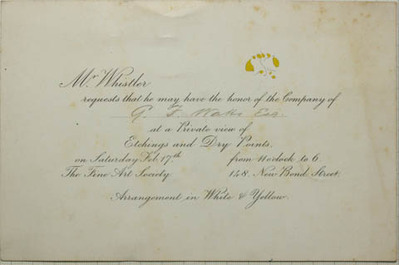 Mr Whistler
requests that he may have the honor of the Company of
G. F. Watts Esq.
at a Private view of
Etchings and Dry Points,
on Saturday Feb. 17th from 11 o'clock to 6.
The Fine Art Society 148. New Bond Street.
Arrangement in White & Yellow.